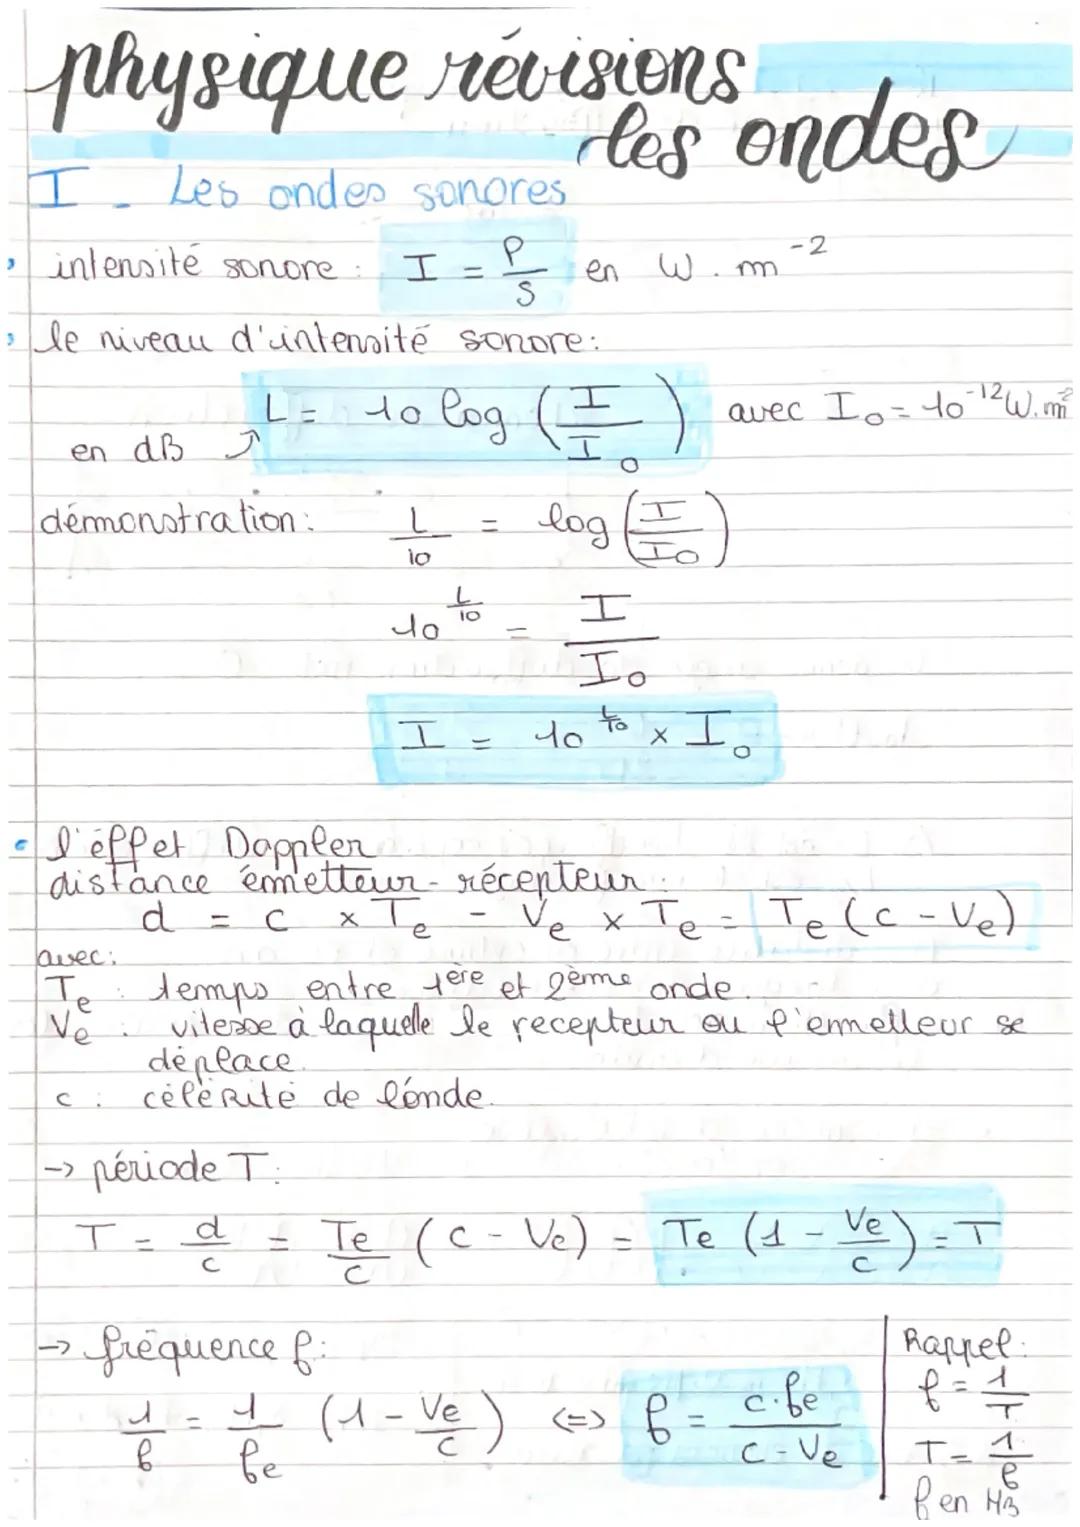 physique révisions
les ondes
I - Les ondes sonores
intensité sonore : I = P/S en W.m⁻²
le niveau d'intensité sonore:
L = 10 log (I/I₀) avec I₀ = 10⁻¹² W.m⁻²
en dB
démonstration: L/10 = log (I/I₀)
10^(L/10) = I/I₀
I = 10^(L/10) × I₀
l'éffet Doppler
distance émetteur-récepteur :
d = c × Te - Ve × Te = Te (c - Ve)
avec:
Te : temps entre 1ère et 2ème onde.
Ve : vitesse à laquelle le recepteur ou l'emetteur se
déplace.
c : célérité de l'onde.
→ période T:
T = d/c = Te/c (c - Ve) = Te (1 - Ve/c) = T
→ fréquence f:
1/f = 1/fe (1 - Ve/c) <=> f = c.fe/(c - Ve)
Rappel:
f = 1/T
T = 1/f
f en Hz